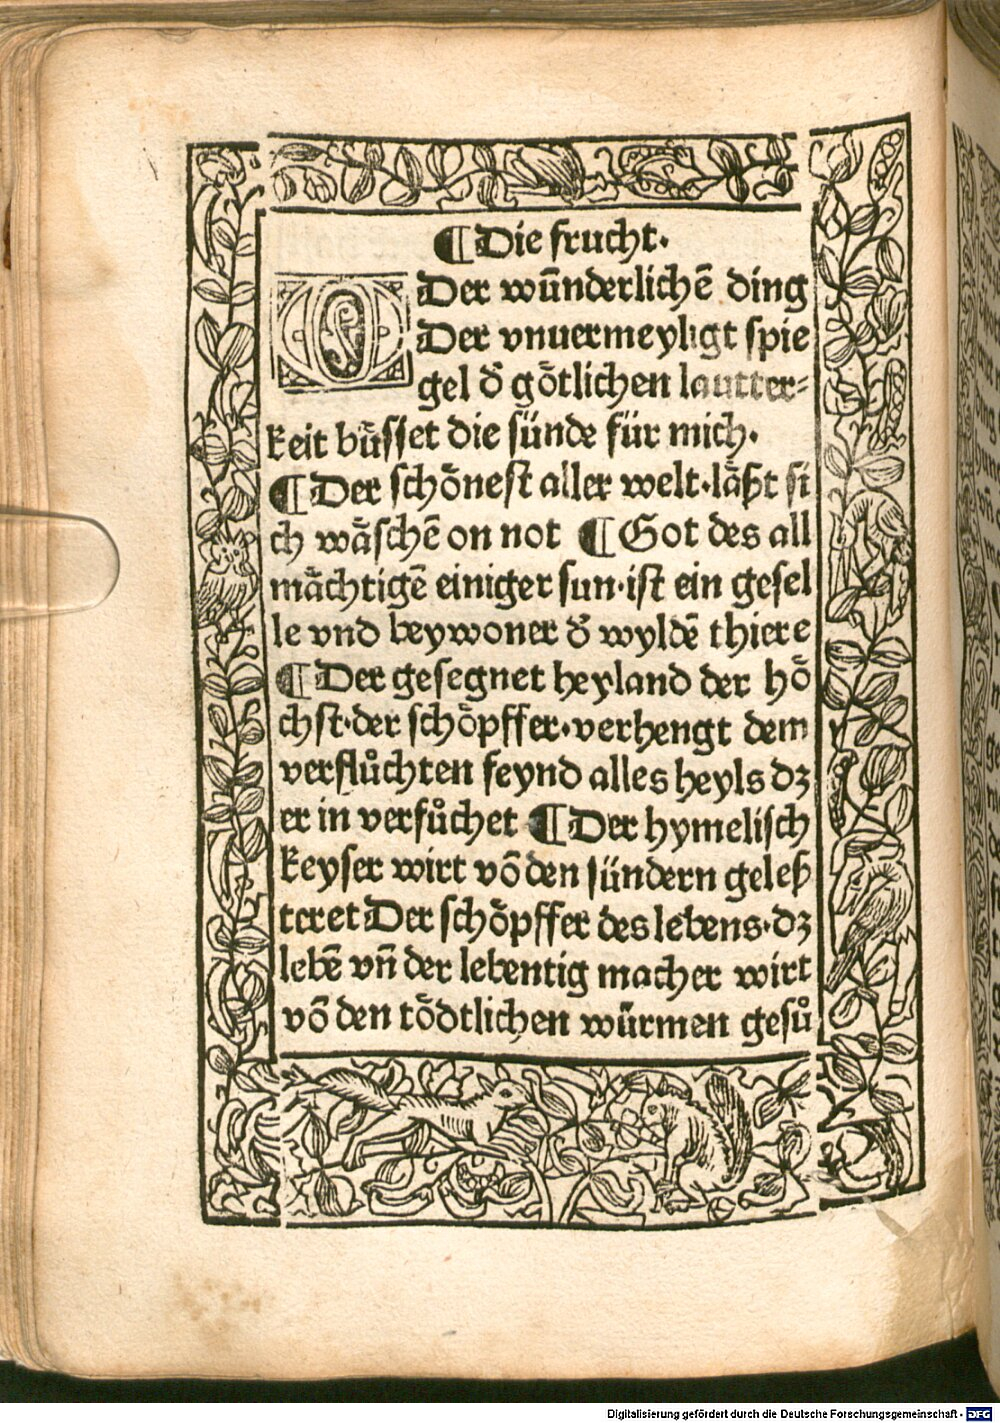 ¶ Die frucht.
O Der wũnderlichẽ ding
Der vnuermeyligt spie
gel d̕ gõtlichen lautter⸗
keit bůsset die sünde für mich.
¶ Der schõnest aller welt·lãßt si
ch wãschẽ on not ¶ Got des all
mãchtigẽ einiger sun·ist ein gesel
le vnd beywoner d̕ wyldẽ thiere
¶ Der gesegnet heyland der hõ
chst·der schõpffer·verhengt dem
verflůchten feynd alles heyls dz
er in versůchet ¶ Der hymelisch
keyser wirt võ den sündern geleß
teret Der schõpffer des lebens·dz
lebẽ vñ der lebentig macher wirt
võ den tõdtlichen würmen gesů
Digitalisierung gefördert durch die Deutsche Forschungsgemeinschaft - DFG